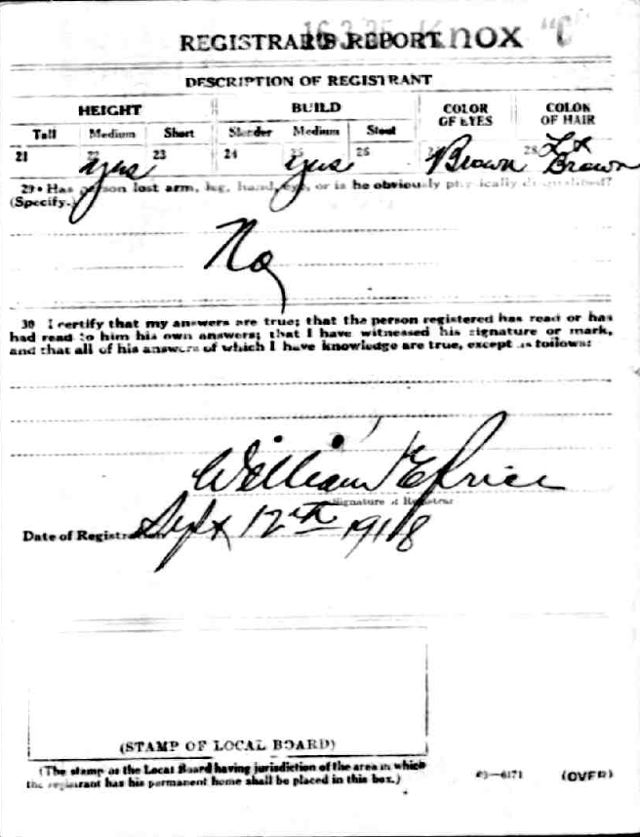 16-3-35 Knox "C"
REGISTRAR'S REPORT
DESCRIPTION OF REGISTRANT
HEIGHT BUILD COLOR OF EYES COLOR OF HAIR
Tall Medium Short Slender Medium Stout
21 22 yes 23 24 25 yes 26 27 Brown 28 Lt Brown
29 Has person lost arm, leg, hand, eye, or is he obviously physically disqualified?
(Specify.)
No
30 I certify that my answers are true; that the person registered has read or has
had read to him his own answers; that I have witnessed his signature or mark,
and that all of his answers of which I have knowledge are true, except as follows:
William E Price
Signature of Registrar
Date of Registration Sept 12th 1918
(STAMP OF LOCAL BOARD)
(The stamp of the Local Board having jurisdiction of the area in which
the registrant has his permanent home shall be placed in this box.)
03—6171 (OVER)